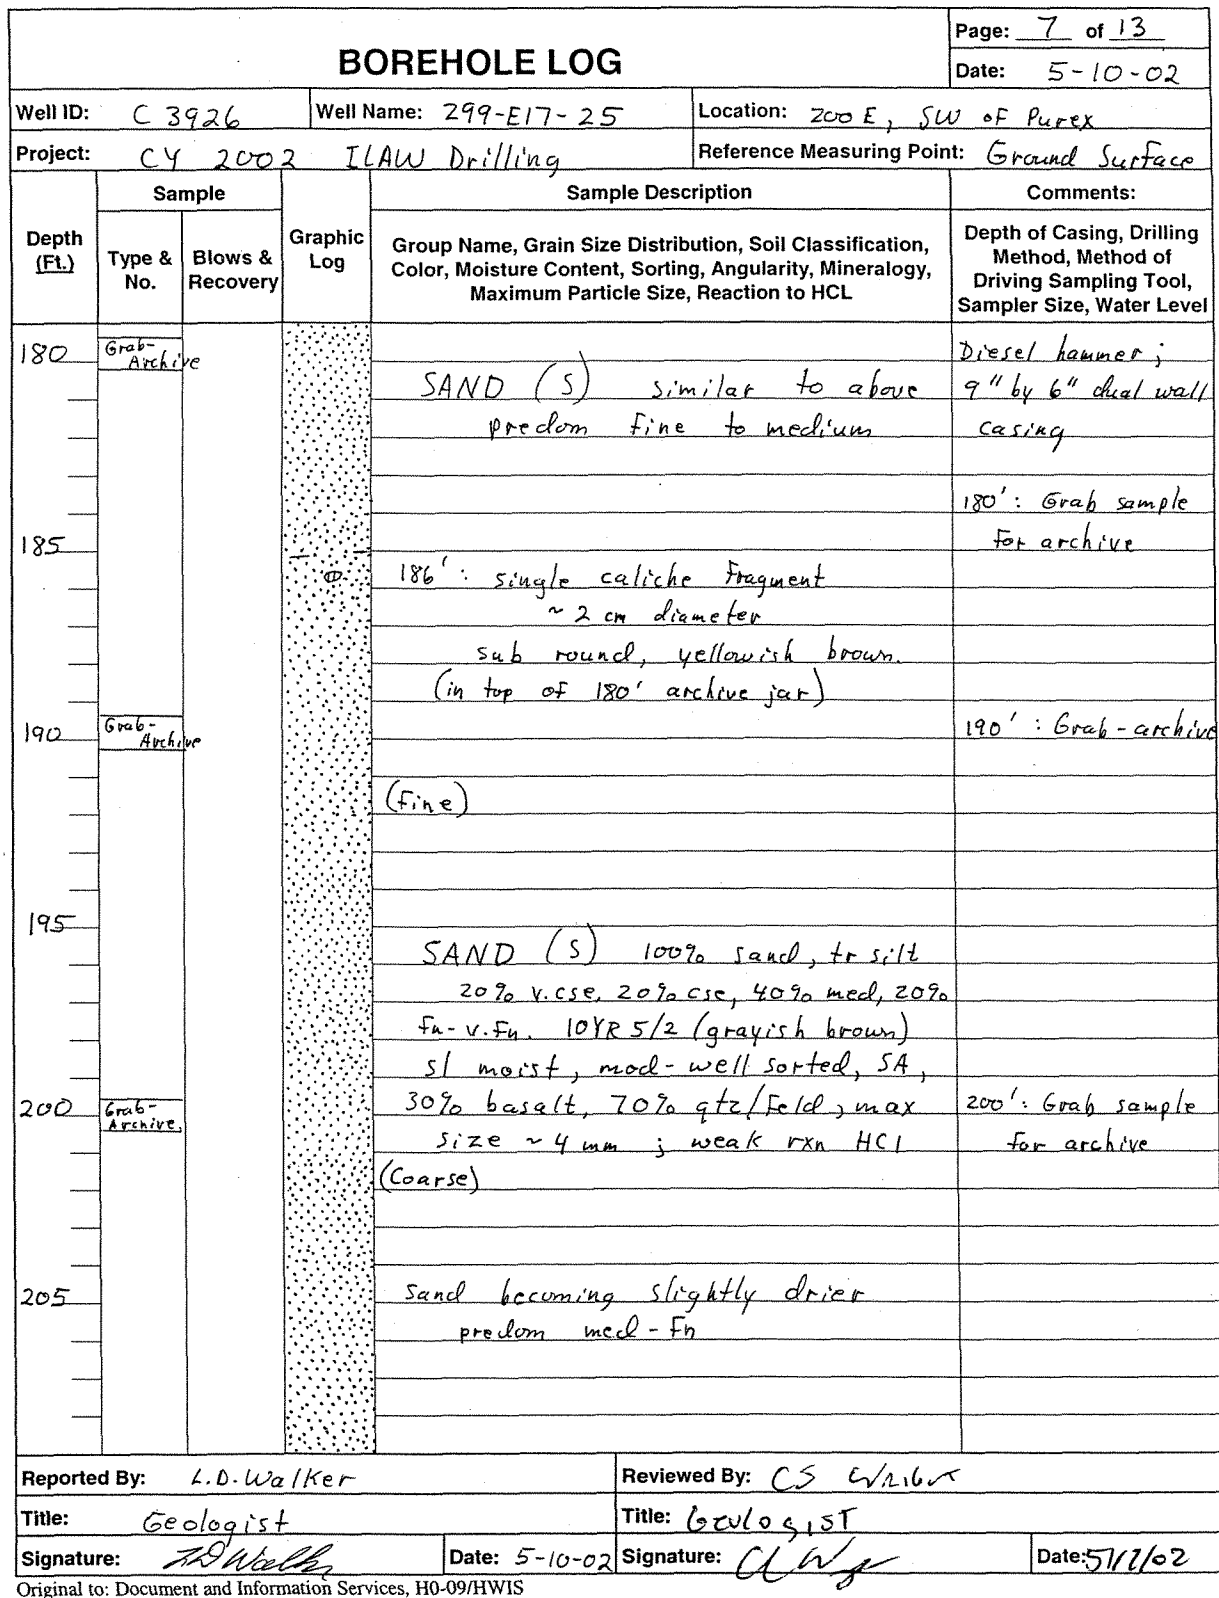 BOREHOLE LOG
Page: 7 of 13
Date: 5-10-02
Well ID: C 3926
Well Name: 299-E17-25
Location: 200 E, SW of Purex
Project: CY 2002 ILAW Drilling
Reference Measuring Point: Ground Surface
Depth (Ft.)
Sample
Type & No.
Blows & Recovery
Graphic Log
Sample Description
Group Name, Grain Size Distribution, Soil Classification,
Color, Moisture Content, Sorting, Angularity, Mineralogy,
Maximum Particle Size, Reaction to HCL
Comments:
Depth of Casing, Drilling
Method, Method of
Driving Sampling Tool,
Sampler Size, Water Level
180 Grab-Archive
Diesel hammer;
SAND (S) similar to above
9" by 6" dual wall
predom fine to medium
casing
180': Grab sample
185
for archive
186': single caliche fragment
~ 2 cm diameter
sub round, yellowish brown.
(in top of 180' archive jar)
190 Grab-Archive
190': Grab-archive
(fine)
195
SAND (S) 100% sand, tr silt
20% v.cse, 20% cse, 40% med, 20%
fn-v.fn. 10YR 5/2 (grayish brown)
sl moist, mod-well sorted, SA,
200 Grab-Archive.
30% basalt, 70% qtz/feld, max
200': Grab sample
size ~ 4 mm ; weak rxn HCl
for archive
(Coarse)
205
sand becoming slightly drier
predom med-fn
Reported By: L.D. Walker
Reviewed By: CS
Title: Geologist
Title: Geologist
Signature: LD Walker
Date: 5-10-02
Signature:
Date:
Original to: Document and Information Services, H0-09/HWIS